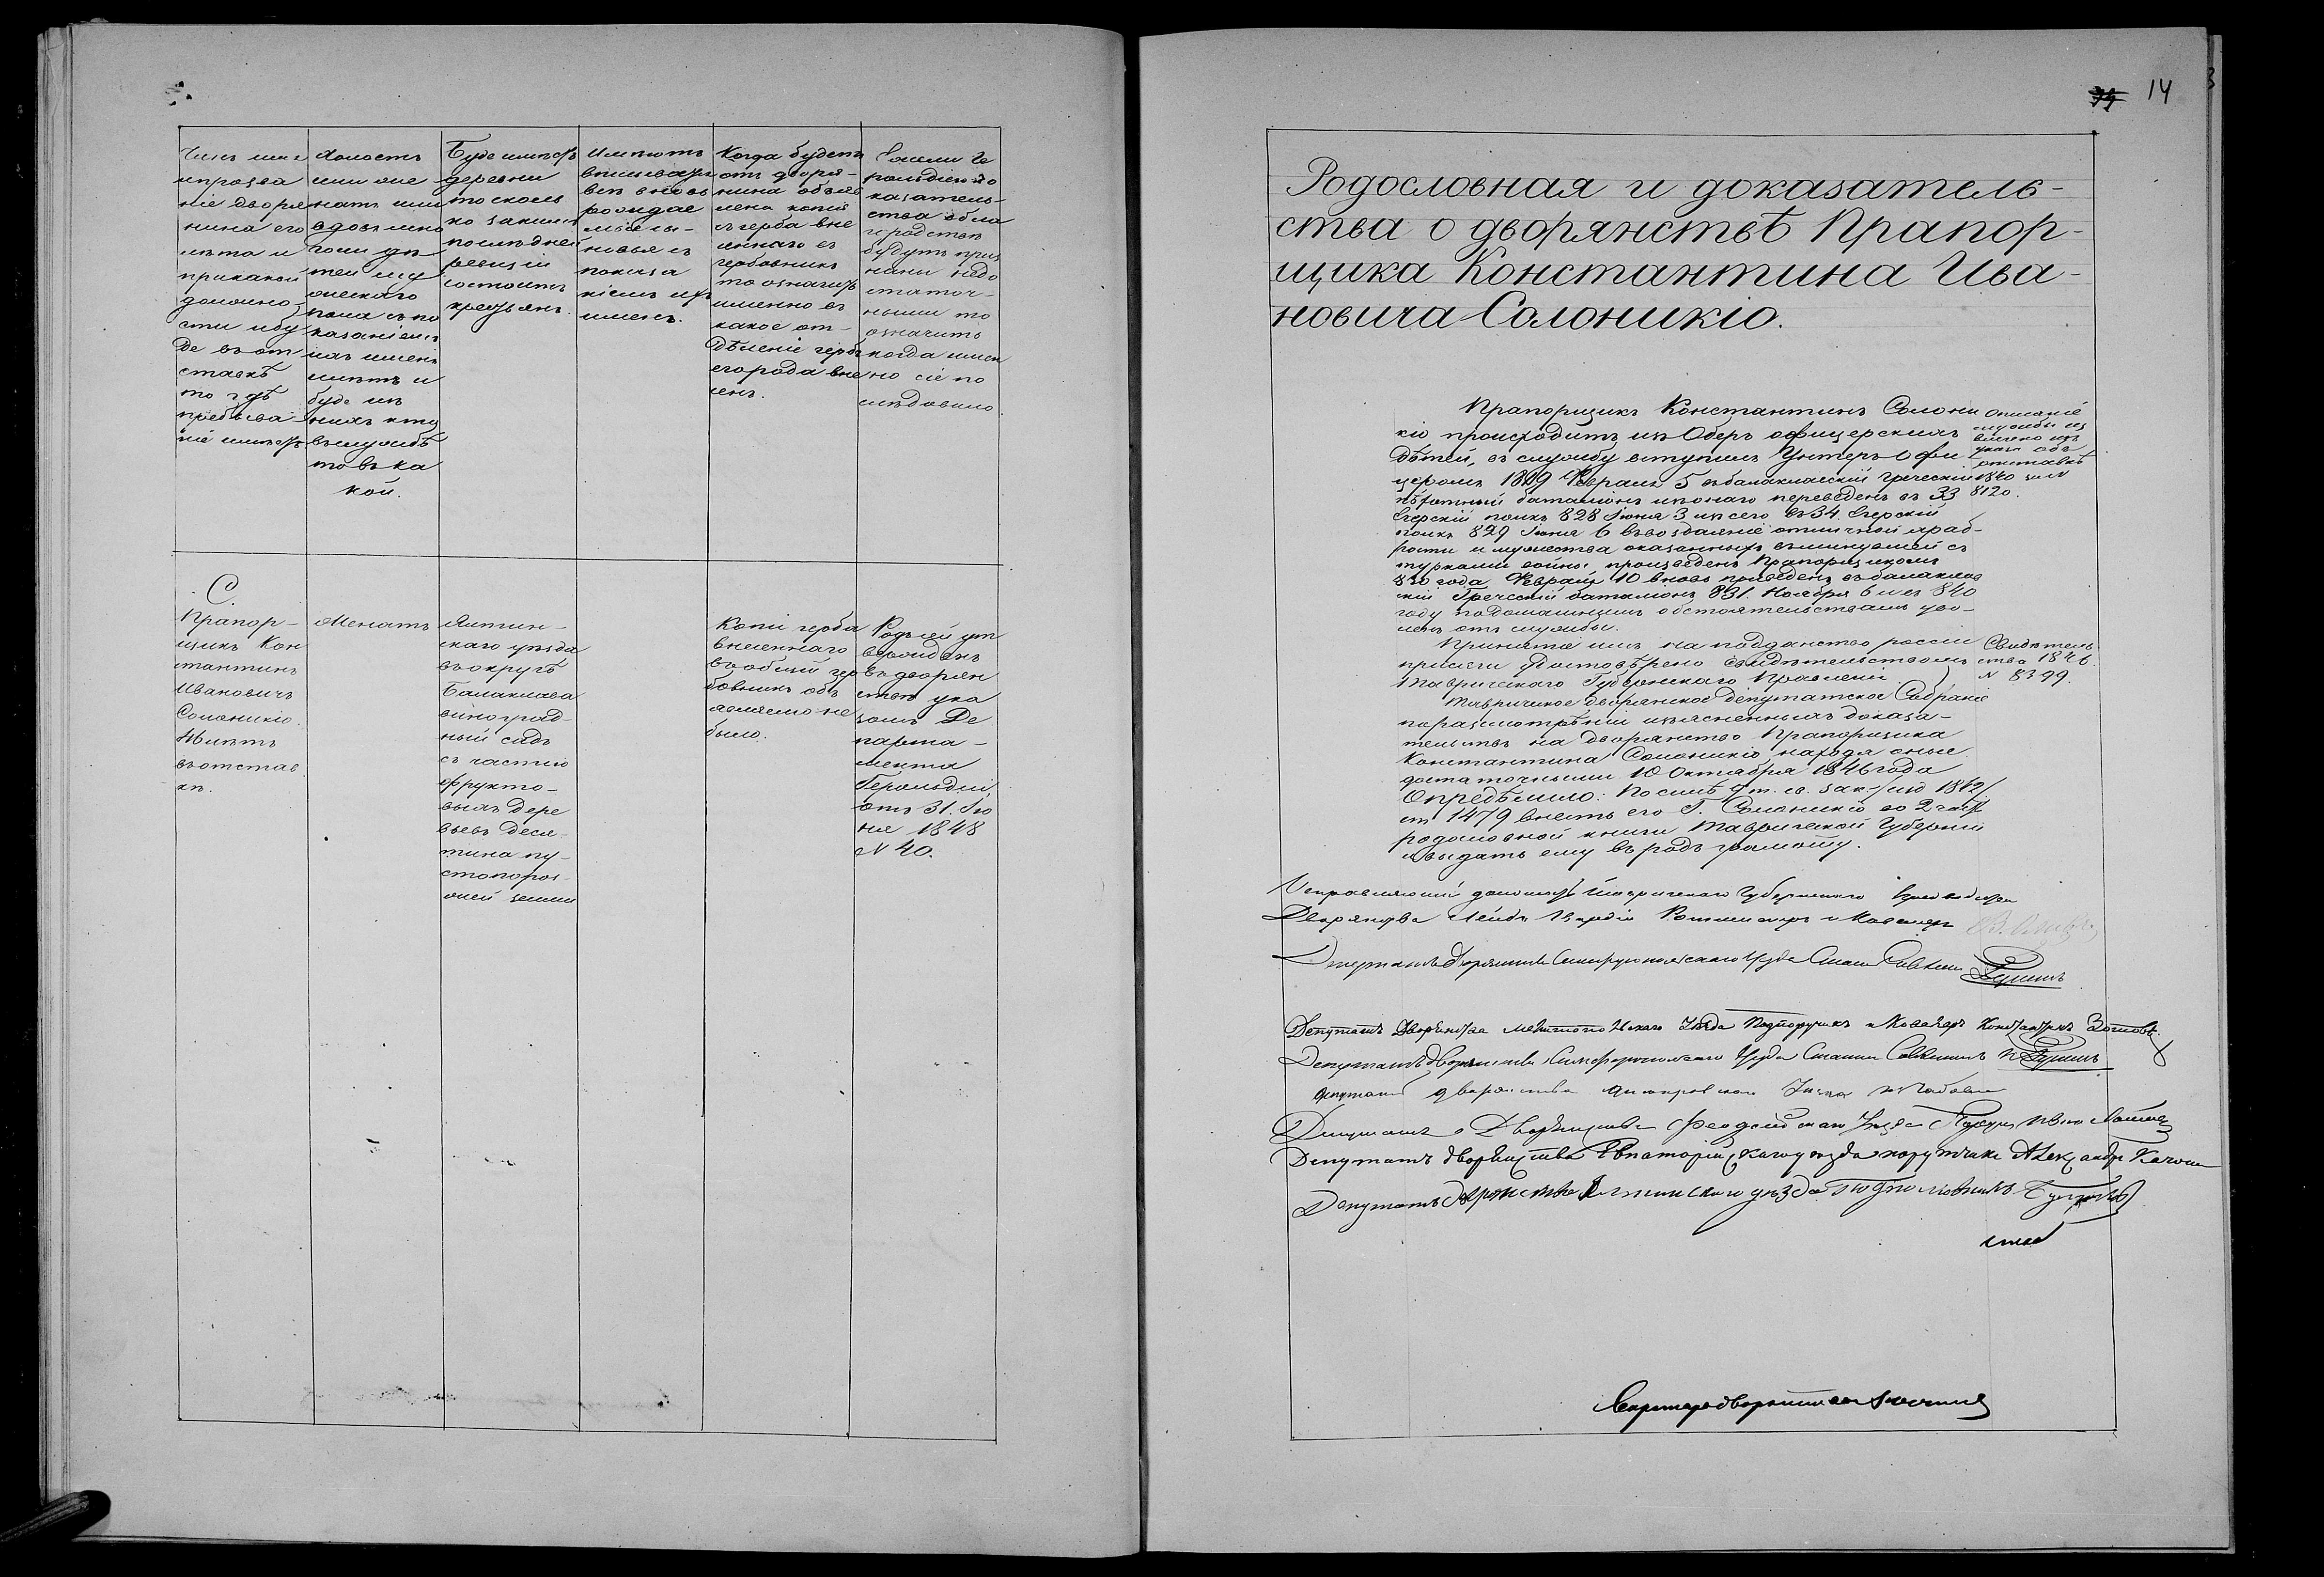 Чинъ имя
и прозва
ніе дворя
нина его
лѣта и
при какой
должно-
сти и бу
де въ от
ставкѣ
то гдѣ
пребыва-
ніе имѣетъ
Холостъ
или же
натъ или
вдовъ и на
комъ дѣ
тей му
жескаго
пола съ по
казаніемъ
ихъ именъ
лѣтъ и
буде изъ
нихъ кто
въ службѣ
то въ ка
кой.
Буде имѣетъ
деревни
то сколь
ко за нимъ
по послѣдней
ревизіи
состоитъ
крестьянъ.
Имѣютъ
вписывать
всѣ вновь
рождае
мые сы-
новья съ
показа
ніемъ ихъ
именъ.
Когда будетъ
отъ дворя-
нина объяв
лена копія
съ герба вне
сеннаго въ
гербовникъ
то означить
именно въ
какое от-
дѣленіе гербъ
его рода вне
сенъ.
Ежели Ге
рольдіею до
казатель-
ства о бла
городствѣ
будутъ приз
наны недо
статоч-
ными то
означить
когда имен
но сіе по
слѣдовало
С.
Прапор-
щикъ Кон
стантинъ
Ивановичъ
Солоникіо.
лѣтъ
въ отстав
кѣ.
Женатъ
Ялтин-
скаго уѣзда
въ округѣ
Балаклава
виноград-
ный садъ
съ частію
фрукто-
выхъ дере
вьевъ деся-
тина пу-
стопорож-
ней земли
Копіи герба
внесеннаго
въ общій гер
бовникъ объ
являемо не
было.
Родъ сей ут
вержденъ
въ дворян
ствѣ ука
зомъ Де
парта-
мента
Герольдіи
отъ 31. Iю
ня 1848
N 40.
14
Родословная и доказатель-
ства о дворянствѣ Прапор-
щика Константина Ива-
новича Солоникіо.
Прапорщикъ Константинъ Солони
кіо происходитъ изъ Оберъ офицерскихъ
дѣтей, въ службу вступилъ Унтеръ Офи
церомъ 1819 Февраля 5 въ балаклавскій Греческій
пѣхотный баталіонъ изъ онаго переведенъ въ 33
Егерскій полкъ 828 Iюня 3 изъ сего въ 34. Егерскій
полкъ 829 Iюня 6 въ воздаяніе отличной храб-
рости и мужества оказанныхъ въ минувшей съ
турками войны, произведенъ Прапорщикомъ
830 года Февраля 10 вновь приведенъ въ балаклав
скій Греческій баталіонъ 831. Ноября 6 и въ 840
году по домашнимъ обстоятельствамъ уво-
ленъ отъ службы.
Описаніе
службы из
влечено изъ
указа объ
отставкѣ
1840 за N
8120.
Принятіе имъ на подданство россіи
присяги удостовѣрено свидѣтельствомъ
Таврическаго Губернскаго Правленія
Свидѣтель
ство 1846.
N 8399.
Таврическое дворянское депутатское Собраніе
по разсмотрѣніи изъясненныхъ доказа-
тельствъ на дворянство Прапорщика
Константина Солоникіо находя оныя
достаточными 10 Октября 1846 года
Опредѣлило: По силѣ т. св. зак. изд 1842
ст 1479 внесть его Г. Солоникіо во 2 часть
родословной книги Таврической Губерніи
и выдать ему въ родъ грамоту.
Исправляющій должность Таврическаго Губернскаго Предводителя
Дворянства Лейбъ Гвардіи Ротмистръ и Кавалеръ
Депутатъ дворянства Симферопольскаго Уѣзда
Депутатъ Дворянства Мелитопольскаго Уѣзда Подпоручикъ и Кавалеръ Константинъ
Депутатъ дворянства Симферопольскаго Уѣзда
Депутатъ дворянства Днепровскаго Уѣзда
Депутатъ Дворянства Феодосійскаго Уѣзда
Депутатъ дворянства Евпаторійскаго уѣзда поручикъ Александръ
Депутатъ дворянства Ялтинскаго уѣзда подполковникъ
Секретарь дворянства